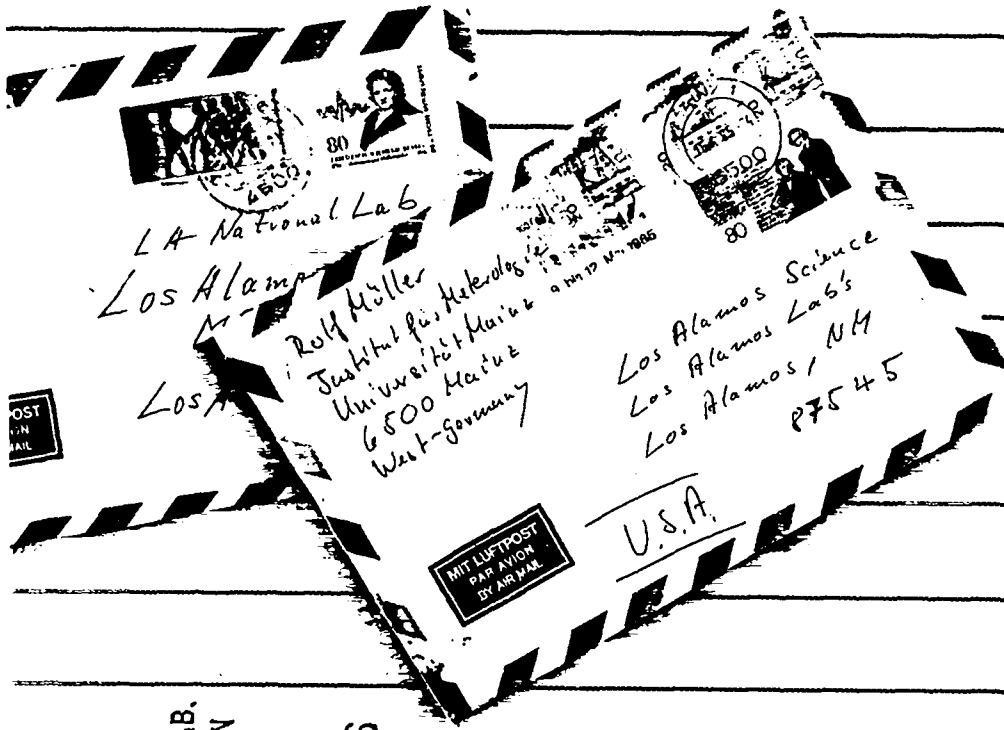 80
6500
LA National Lab
Los Alam
Los A
POST
MAIL
Rolf Müller
Institut für Meterologie
Universität Mainz
6500 Mainz
West-Germany
6500
80
Los Alamos Science
Los Alamos Lab's
Los Alamos, NM
87545
U.S.A.
MIT LUFTPOST
PAR AVION
BY AIR MAIL